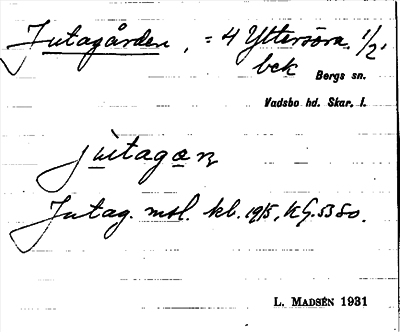 Jutagården, = 4 Yttersöra, 1/2,
bck
Bergs sn.
Vadsbo hd. Skar. l.
jùtagəṇ
Jutag. msl. kb. 1915, KG. 53 So.
L. MADSÉN 1931